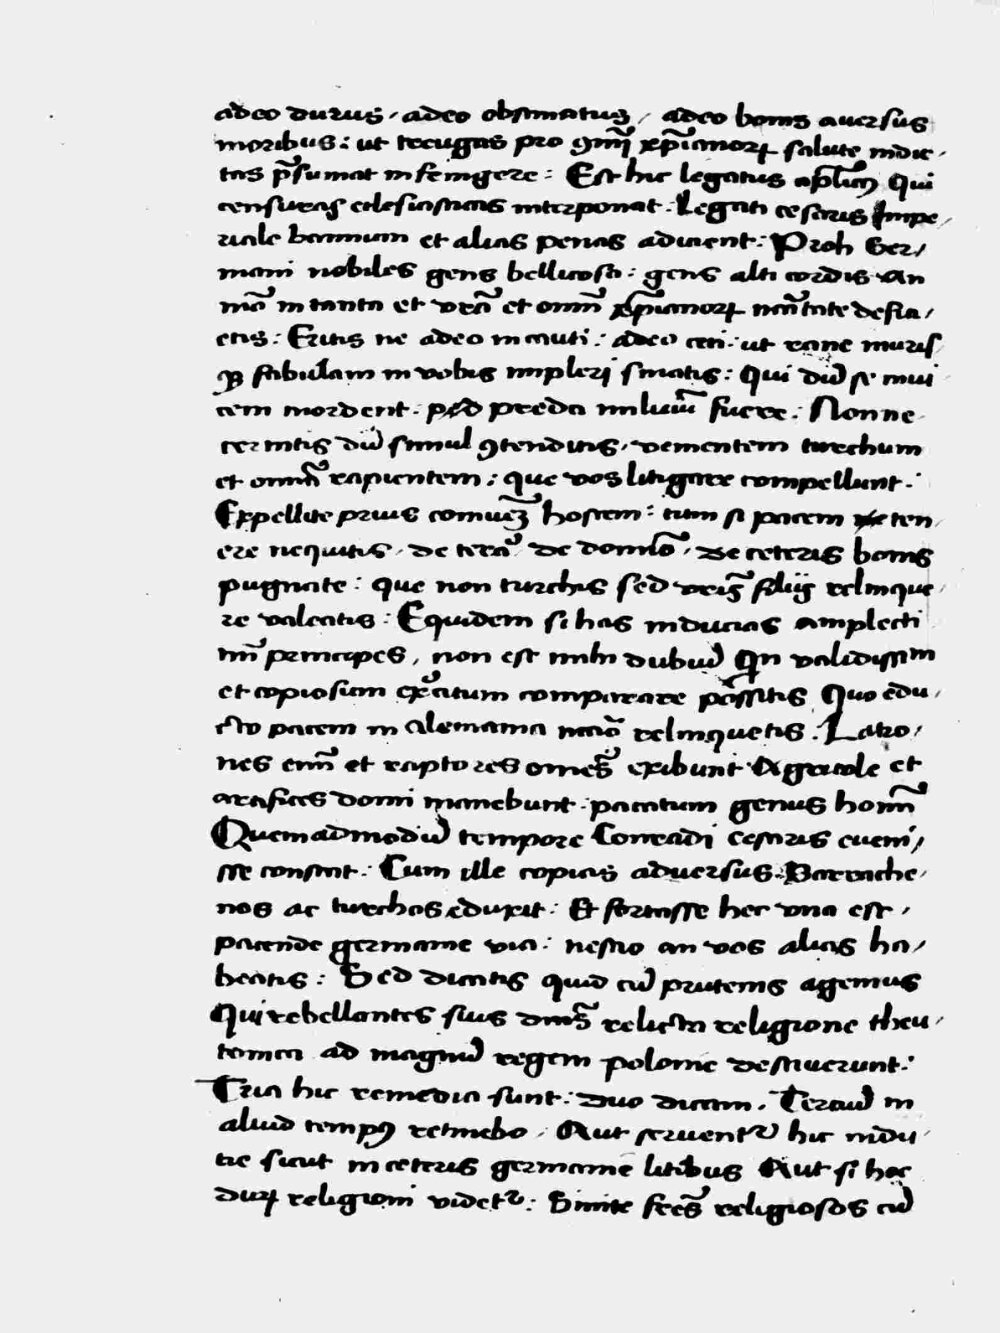 adeo durus, adeo obstinatus, adeo bonis aversus
moribus: ut treugas pro co͞mu͞i xp͞ianorꝝ salute indic,
tas p͞sumat infringere: Est hic legatus ap͞licꝰ Qui
censuras eclesiasticas interponat. Legati cesaris Impe,
riale bannum et alias penas adicient: Proh Ger,
mani nobiles gens bellicosa: gens alti cordis An
in tanta et vr͞a et om͞iu͞ xp͞ianorꝝ
etis: Eritis ne adeo incauti: adeo ceci: ut rane muris
qꝫ fabulam in vobis impleri sinatis: Qui du͞ se invi
cem mordent. preda milui͞ fuere: Nonne
cernitis du͞ simul ꝯtenditis, venientem turchum
et om͞ia rapientem: que vos litigare compellunt:
Expellite prius comune͞ hostem: tum si pacem ten
ere nequitis, de terra͞, de domi͞o, de ceteris bonis
pugnate: que non turchis sed vr͞is filiis relinque,
re valeatis: Equidem si has inducias amplecti
mi͞ principes, non est mihi dubiu͞ Qn validissim
et copiosum ex͞citum comparare possitis Quo edu,
cto pacem in Alemania relinquetis. Latro,
nes eni͞ et raptores omnes͞ exibunt Agricole et
artifices domi manebunt: pacatum genus homi͞u
Quemadmodu͞ tempore Conradi cesaris eveni,
sse constat: Cum ille copias adversus Sarrache,
nos ac turchos eduxit: Et fortasse hec una est,
pacande germanie via: nescio an vos alias ha,
beatis: Sed dicatis quid cu͞ prutenis agemus
Qui rebellantes suis dn͞is relicta religione theu,
tonica ad magnu͞ regem polonie desciverunt:
Tria hic remedia sunt: duo dicam. Terciu͞ in
aliud tempꝰ retinebo. Aut serventᷣ hic indu,
tie sicut in ceteris germanie litibus Aut si hoc
durꝝ religioni videtᷣ: Sinite fr͞es religiosos cu͞